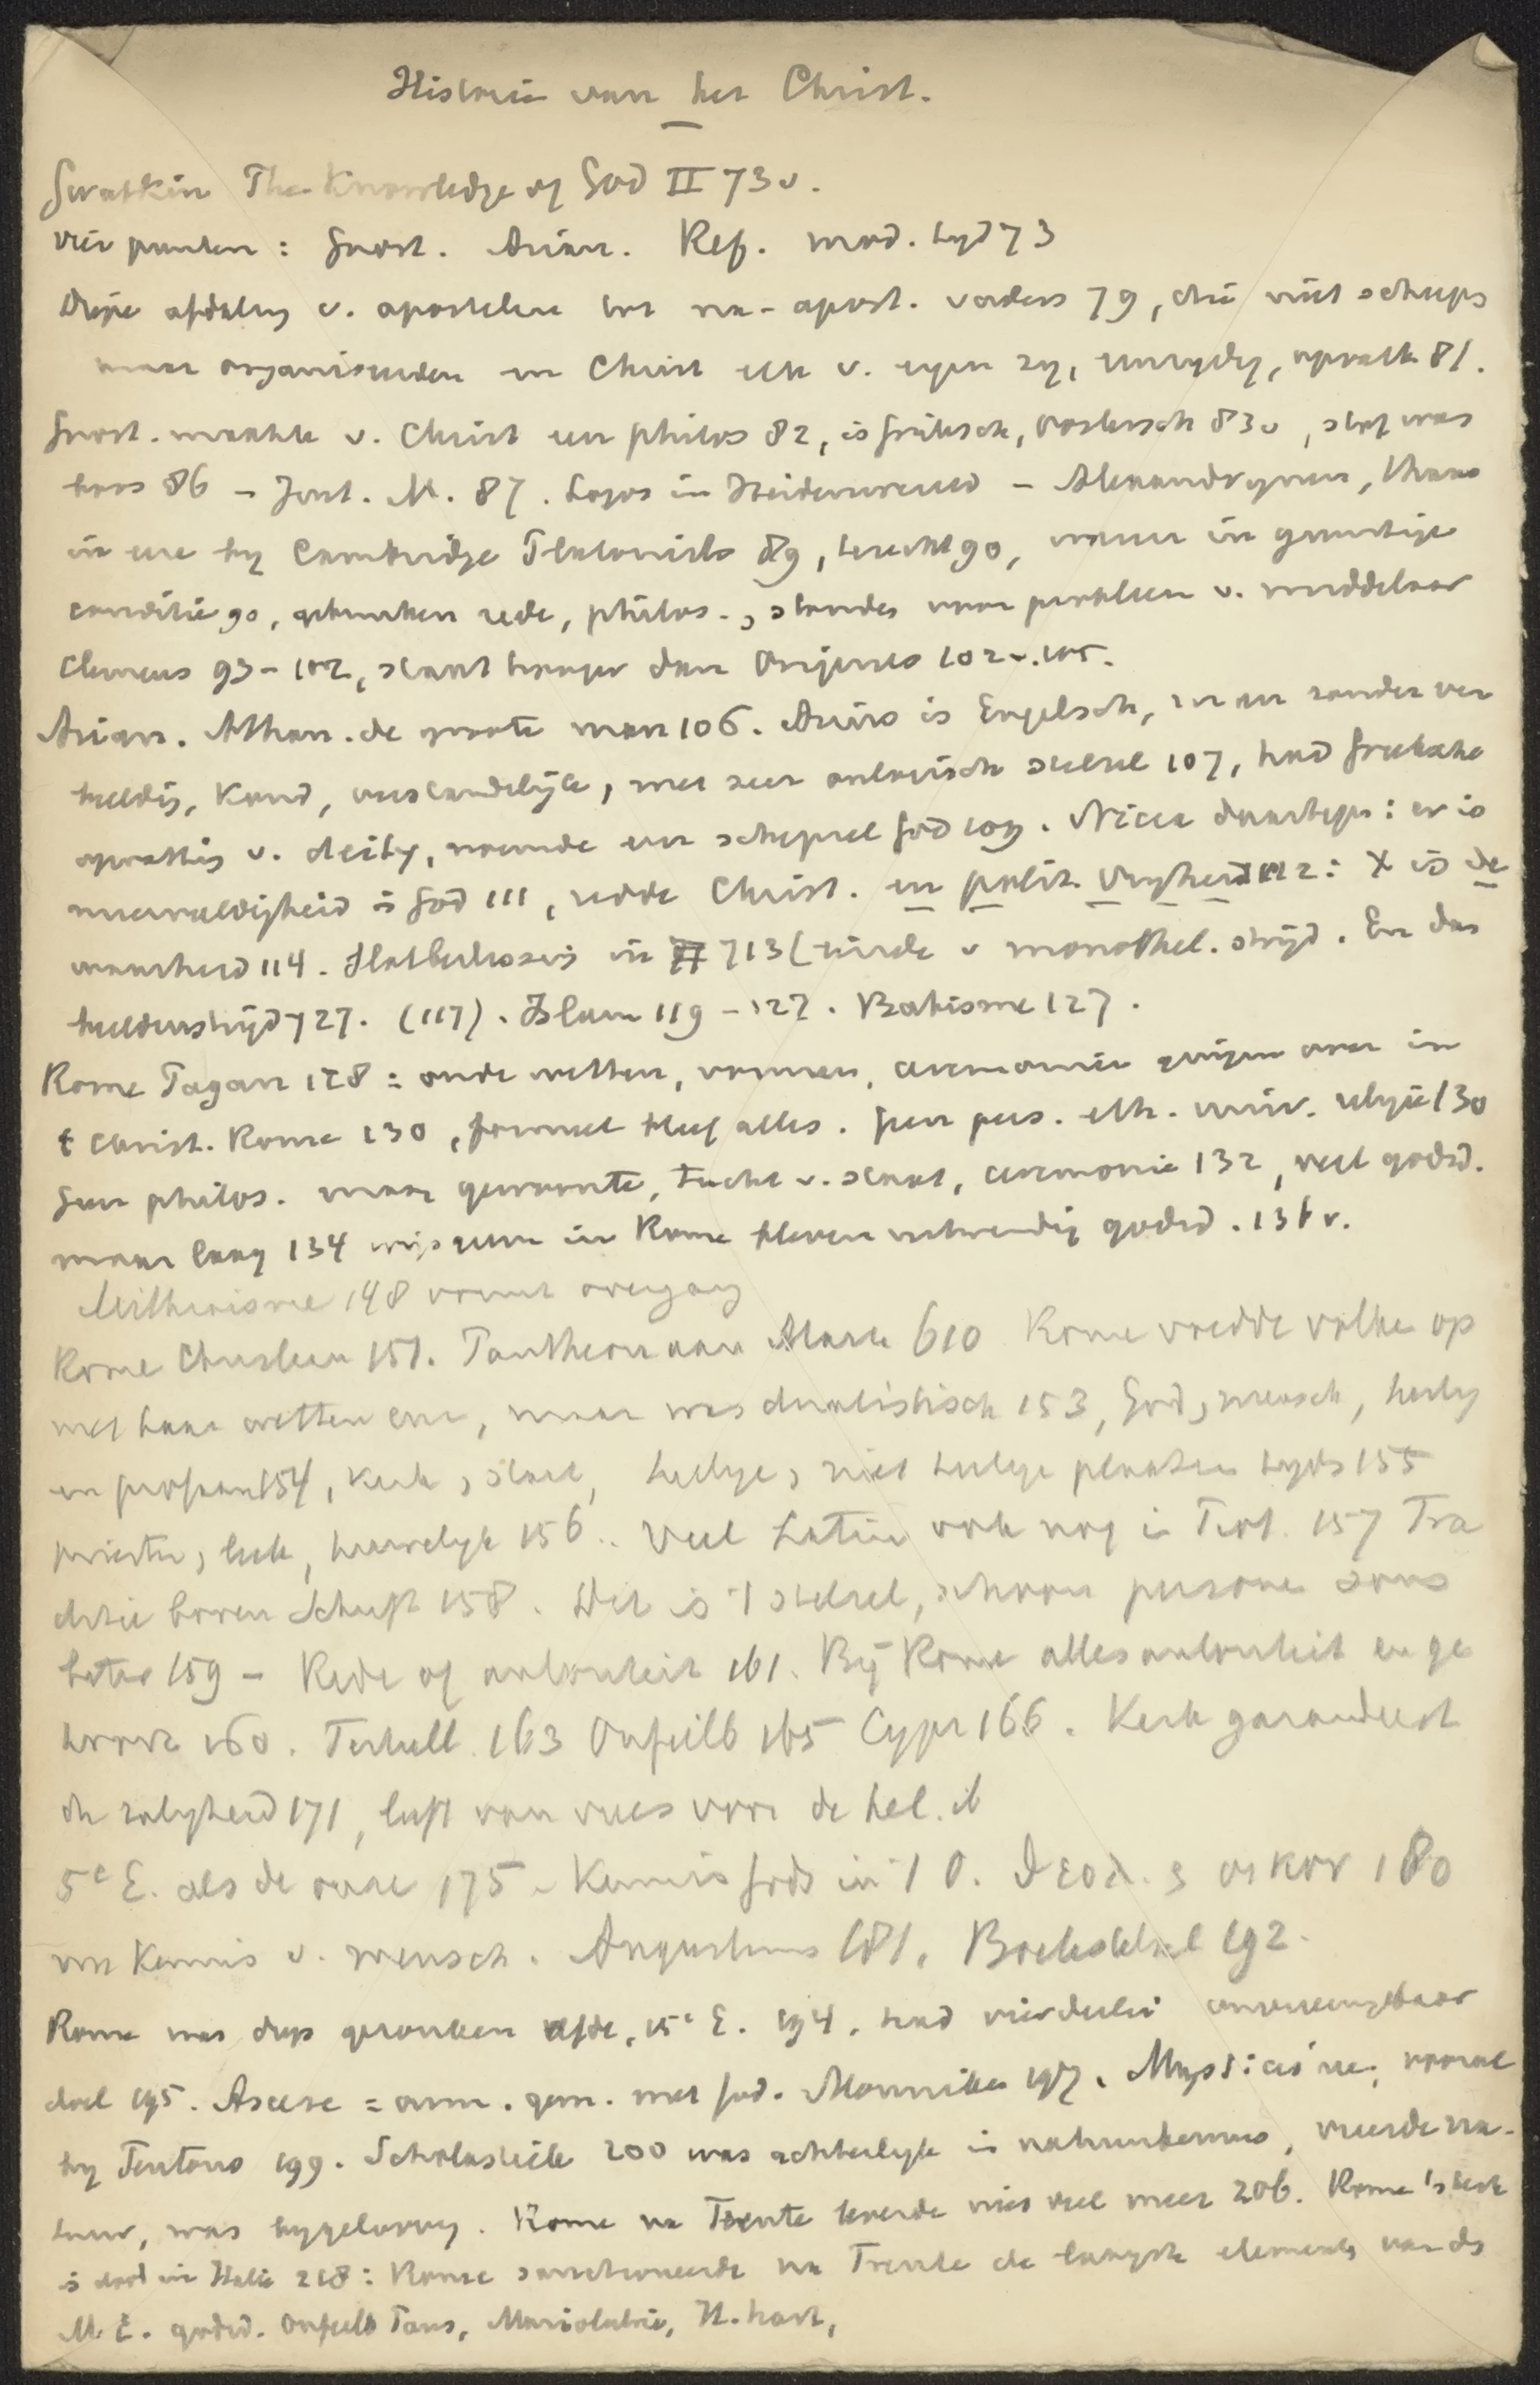 Historie van het Christ.
Gwatkin The Knowledge of God II 73v.
vier punten: Gnost. Arian. Ref. mod. tyd 73
Diepe afdaling v. apostelen tot na-apost. vaders 79, die niet scheps
maar organiseerden en Christ v. eyen zy, opvatte 81.
Gnost. maakte v. Christ een philos 82, is grieksch, oostersch 83v, stof was
boos 86 – Just. M. 87. Logos in Heidenwereld – Alexandrynen, thans
in ere by Cambridge Platonists 89, terecht 90, waren in gunstige
conditie 90, gebruiken rede, philos., stonden voor probleem v. middelaar
Clemens 93–102, staat hooger dan Origenes 102v.105.
Arian. Athan. de groote man 106. Arius is Engelsch, man zonder ver
beelding, koud, verstandelijk, met zeer stelsel 107, had Grieksche
opvatting v. deity, noemde een schepsel God 109. Nicea daartegen: er is
meervuldigheid in God 111, redde Christ. en polit. vryheid 112: X is de
waarheid 114. in 713 (einde v monothel. strijd. En dan
beeldenstrijd 727. (117). Islam 119–127. Babisme 127.
Rome Pagan 128: oude wetten, vormen, ceremonien gingen over in
t Christ. Rome 130, formeel bleef alles. Geen pers. eth. univ. religie 130
Geen philos. maar gewoonte, tucht v. staat, ceremonie 132, veel godsd.
maar laag 134 in Rome bleven godsd. 136v.
Mithraisme 148 vormt overgang
Rome Christian 151. Pantheon aan Maria 610 Rome voedde volken op
met haar wetten enz, maar was dualistisch 153, God, mensch, heilig
en profaan 154, Kerk, staat, heilige, niet heilige plaatsen tyds 155
priester, leek, huwelyk 156. Veel Latin ook nog in Prot. 157 Tra
ditie boven Schrift 158. Het is 't stelsel, schoon personen soms
beter 159 – Rede of autoriteit 161. By Rome alles autoriteit en ge
hoorz 160. Tertull. 163 Onfeilb 165 Cypr 166. Kerk garandeert
de zaligheid 171, leeft van vrees voor de hel. ib
5e E. als de onze 175. Kennis Gods in 't O. 180
Kennis v. mensch. Augustinus 181. Boetestelsel 192.
Rome was diep gezonken 15e E. 194. had vierderlei
doel 195. Ascese = gem. met God. Monniken 197. Mysticisme, vooral
by Teutons 199. Scholastiek 200 was achterlyk in natuurkennis, vreesde na-
tuur, was bygeloovig. Rome na Trente leerde niet veel meer 206. Rome 's kerk
is dood in Italie 218: Rome sanctioneerde na Trente de laagste elements van de
M. E. godsd. Onfeilb Paus, Mariolatrie, H. hart,